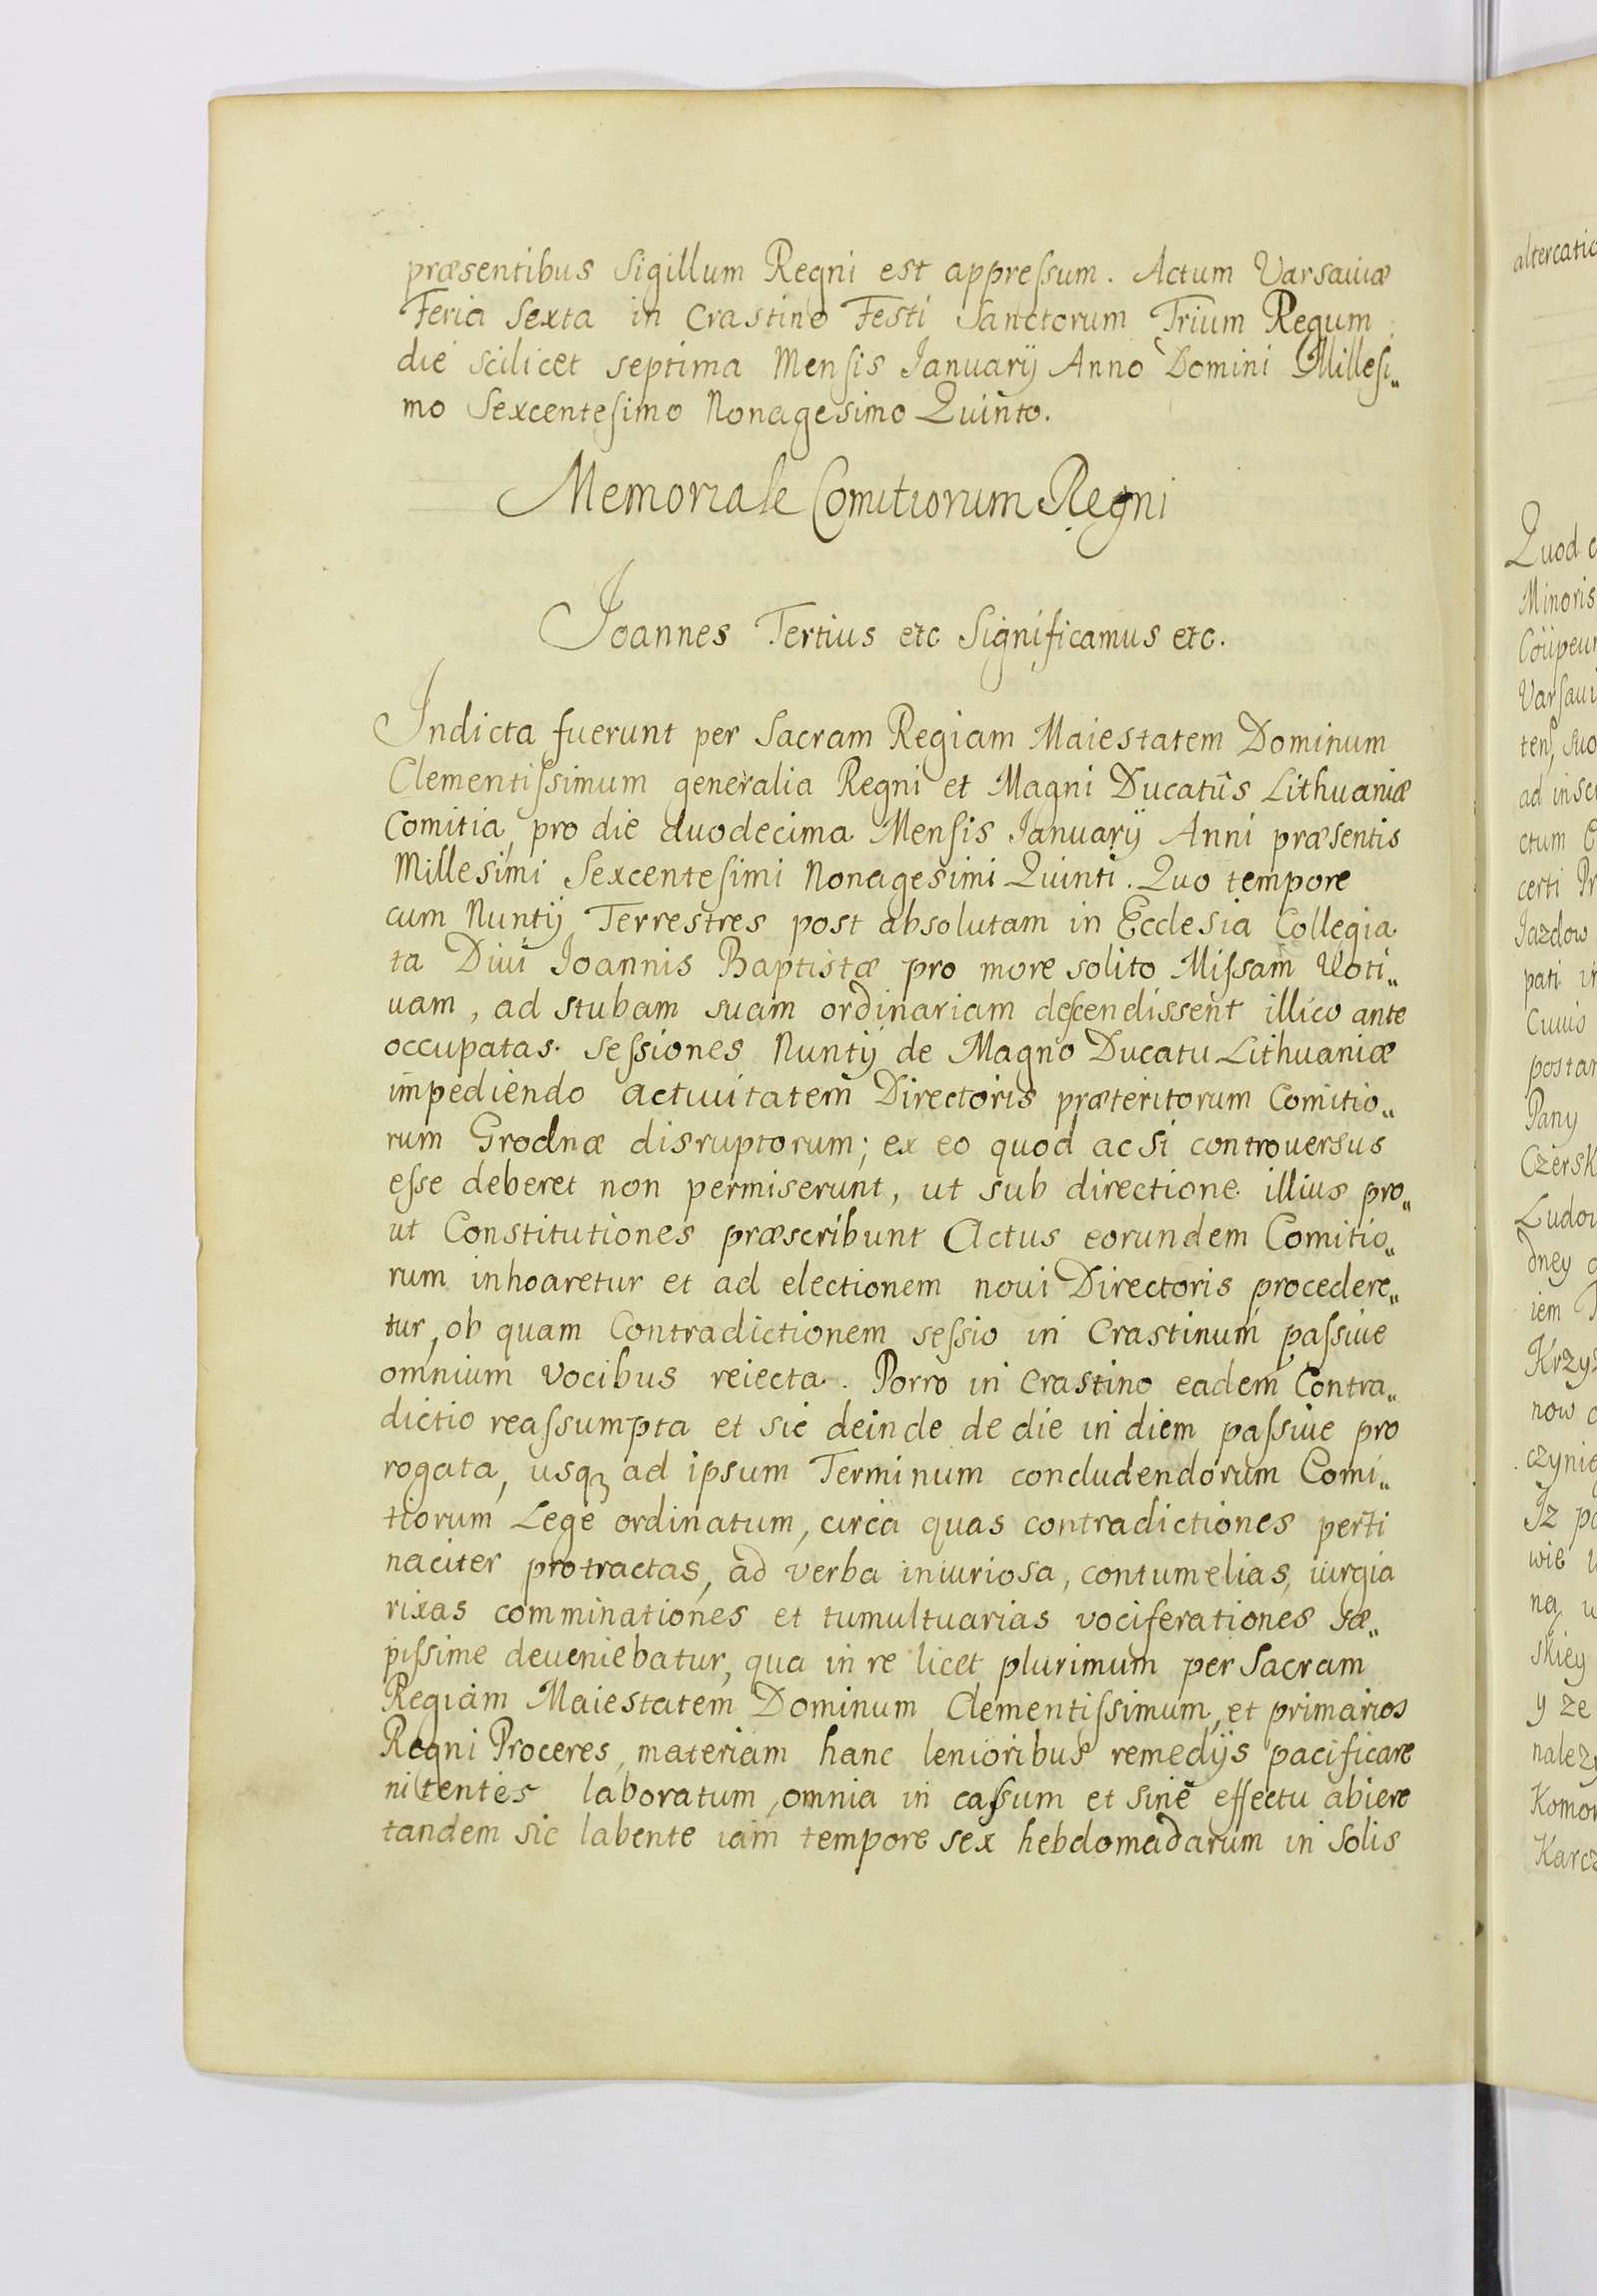 præsentibus Sigillum Regni est appressum. Actum Varsaviæ
Feria Sexta in Crastino Festi Sanctorum Trium Regum
die scilicet septima Mensis Januarij Anno Domini Millesi„
mo Sexcentesimo Nonagesimo Quinto.
Memoriale Comitiorum Regni
Joannes Tertius etc Significamus etc.
Indicta fuerunt per Sacram Regiam Maiestatem Dominum
Clementissimum generalia Regni et Magni Ducatûs Lithuaniæ
Comitia, pro die duodecima Mensis Januarij Anni præsentis
Millesimi Sexcentesimi Nonagesimi Quinti. Quo tempore
cum Nuntij Terrestres post absolutam in Ecclesia Collegia
ta Divi Joannis Baptistæ pro more solito Missam Uoti„
uam, ad stubam suam ordinariam descendissent illico ante
occupatas sessiones Nuntij de Magno Ducatu Lithuaniæ
impediendo activitatem Directoris præteritorum Comitio„
rum Grodnæ disruptorum; ex eo quod ac si controversus
esse deberet non permiserunt, ut sub directione illius pro„
ut Constitutiones præscribunt Actus eorundem Comitio„
rum inhoaretur et ad electionem noui Directoris procedere„
tur, ob quam Contradictionem sessio in Crastinum passiue
omnium vocibus reiecta. Porro in Crastino eadem Contra„
dictio reassumpta et sic deinde de die in diem passiue pro
rogata, usqꝫ ad ipsum Terminum concludendorum Comi„
tiorum Lege ordinatum, circa quas contradictiones perti
naciter protractas, ad verba iniuriosa, contumelias, iurgia
rixas comminationes et tumultuarias vociferationes sæ„
pissime deueniebatur, qua in re licet plurimum per Sacram
Regiam Maiestatem Dominum Clementissimum, et primarios
Regni Proceres, materiam hanc lenioribus remedijs pacificare
nitentes laboratum, omnia in cassum et sine effectu abiere
tandem sic labente iam tempore sex hebdomadarum in solis
altercatio
Quod
Minoris
ad
ctum
certi
Jazdow
pati
Cuius
Pany
dney
iem
now
Iz
wie
na
skiey
y ze